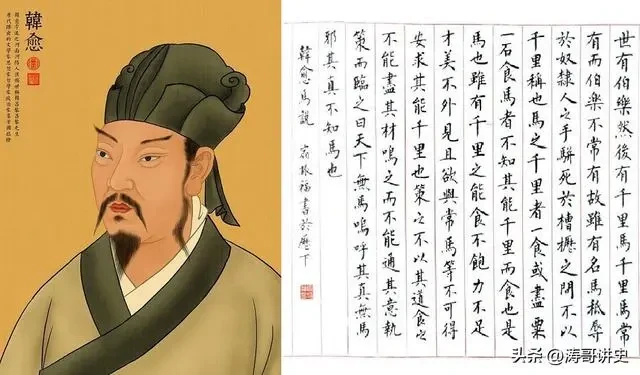 韓愈
世有伯樂然後有千里馬千里馬常
有而伯樂不常有故雖有名馬秪辱
於奴隸人之手駢死於槽櫪之間不以
千里稱也馬之千里者一食或盡粟
一石食馬者不知其能千里而食也是
馬也雖有千里之能食不飽力不足
才美不外見且欲與常馬等不可得
安求其能千里也策之不以其道食之
不能盡其材鳴之而不能通其意執
策而臨之曰天下無馬嗚呼其真無馬
邪其真不知馬也
韓愈馬說 根福書於歷下
头条 @涛哥讲史